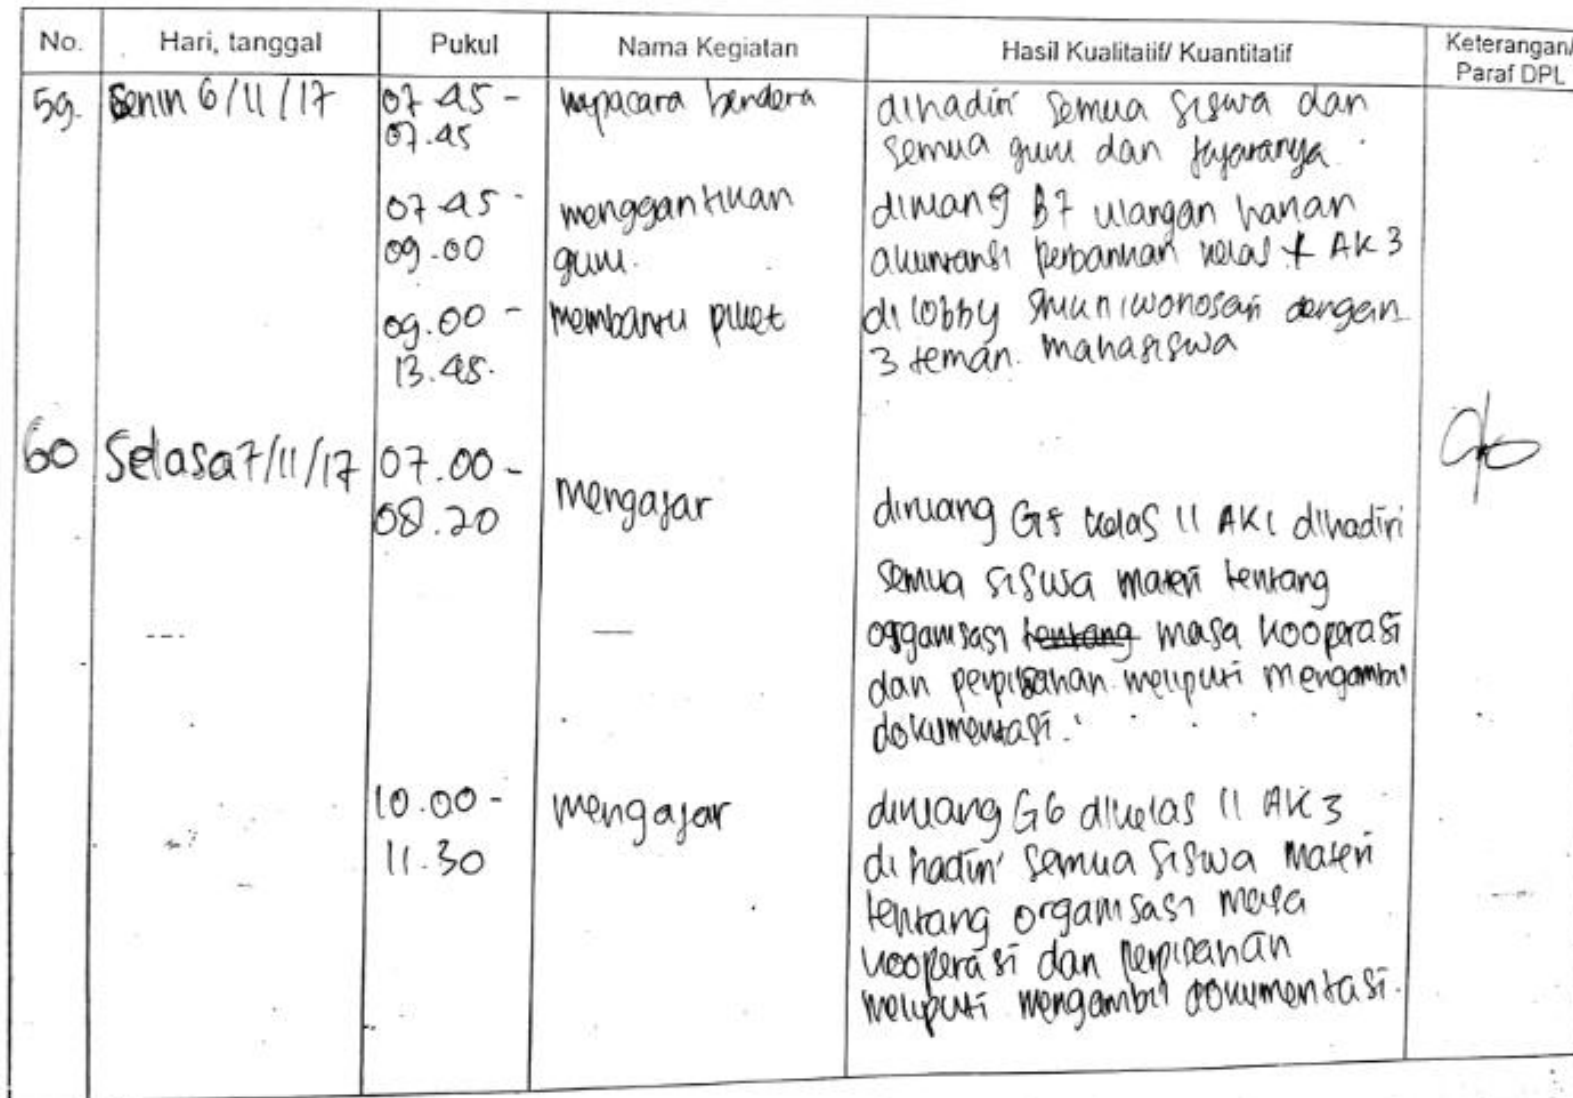 No. Hari, tanggal Pukul Nama Kegiatan Hasil Kualitatif/ Kuantitatif Keterangan/
Paraf DPL
59. Senin 6/11/17 07.45 - upacara bendera dihadiri semua siswa dan
07.45 semua guru dan jajaranya.
07.45 - menggantikan diruang B7 ulangan harian
09.00 guru. akuntansi perbankan kelas X AK 3
09.00 - membantu piket di lobby SMK N 1 wonosari dengan
13.45. 3 teman. mahasiswa
60 Selasa 7/11/17 07.00 -
08.20 mengajar diruang G5 kelas 11 AK1 dihadiri
semua siswa materi tentang
organisasi tentang masa kooperasi
dan perpisahan meliputi mengambil
dokumentasi.
10.00 - mengajar diruang G6 dikelas 11 AK 3
11.30 dihadiri semua siswa materi
tentang organisasi masa
kooperasi dan perpisahan
meliputi mengambil dokumentasi.